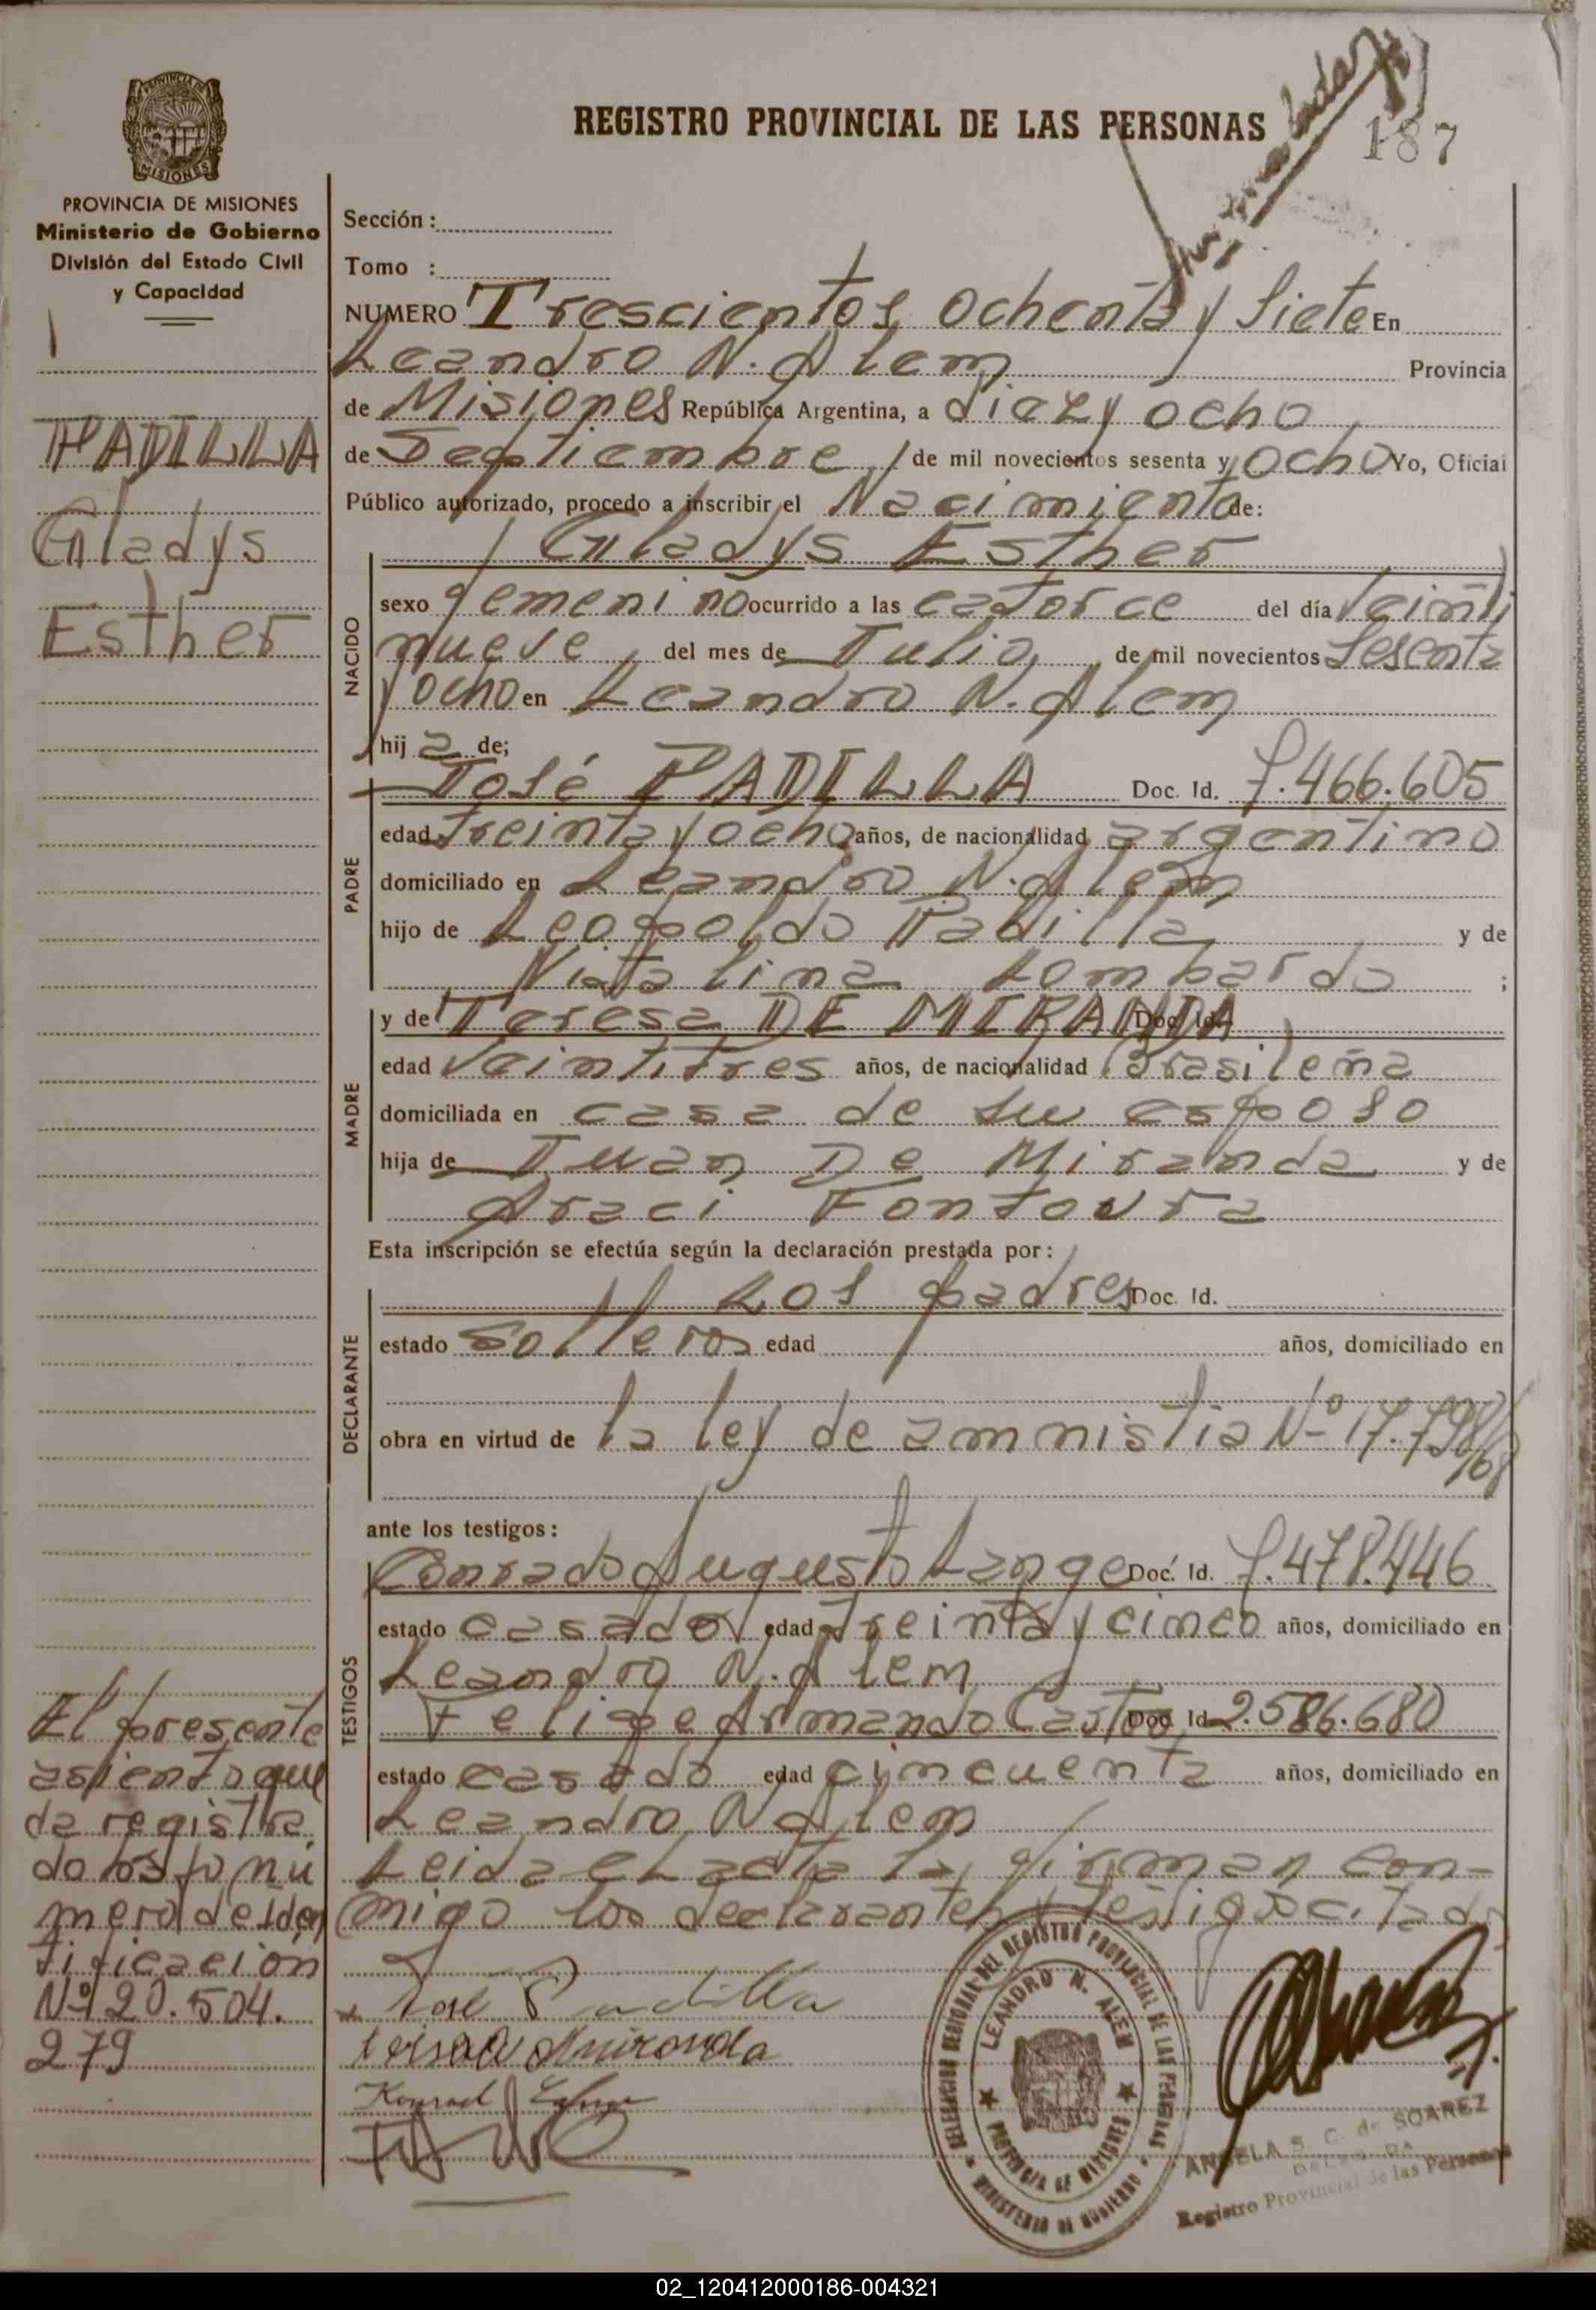 REGISTRO PROVINCIAL DE LAS PERSONAS
187
PROVINCIA DE MISIONES
MISIONES
PROVINCIA DE MISIONES
Ministerio de Gobierno
División del Estado Civil
y Capacidad
PADILLA
Gladys
Esther
Sección :
Tomo :
NUMERO Trescientos ochenta y Siete En
Leandro N. Alem Provincia
de Misiones República Argentina, a diez y ocho
de Septiembre de mil novecientos sesenta y ocho Yo, Oficial
Público autorizado, procedo a inscribir el Nacimiento de:
Gladys Esther
NACIDO
sexo femenino ocurrido a las catorce del día Veinti
nueve del mes de Julio de mil novecientos Sesenta
y ocho en Leandro N. Alem
hij a de;
PADRE
José PADILLA Doc. Id. 7.466.605
edad treinta y ocho años, de nacionalidad argentino
domiciliado en Leandro N. Alem
hijo de Leopoldo Padilla y de
Natalina Lombardo ;
MADRE
y de Teresa DE MIRANDA Doc. Id.
edad Veintitres años, de nacionalidad Brasileña
domiciliada en casa de su esposo
hija de Juan De Miranda y de
Araci Fontoura
Esta inscripción se efectúa según la declaración prestada por:
DECLARANTE
Los padres Doc. Id.
estado Solteros edad años, domiciliado en
obra en virtud de la ley de amnistia Nº 17.798/68
ante los testigos:
TESTIGOS
Conrado Augusto Lange Doc. Id. 7.478.446
estado casado edad treinta y cinco años, domiciliado en
Leandro N. Alem
Felipe Armando Castro Doc. Id. 2.586.680
estado casado edad cincuenta años, domiciliado en
Leandro N. Alem
Leida el acta la firman con-
migo los declarantes y testigos citados
El presente
asiento que
da registra
do bajo nu
mero de iden
tificación
Nº 20.504.
279
José Padilla
teresa de Miranda
Konrad Lange
DELEGACION REGIONAL DEL REGISTRO PROVINCIAL DE LAS PERSONAS
LEANDRO N. ALEM
PROVINCIA DE MISIONES
MINISTERIO DE GOBIERNO
ANGELA S. C. de SOAREZ
DELEGADA
Registro Provincial de las Personas
02_120412000186-004321